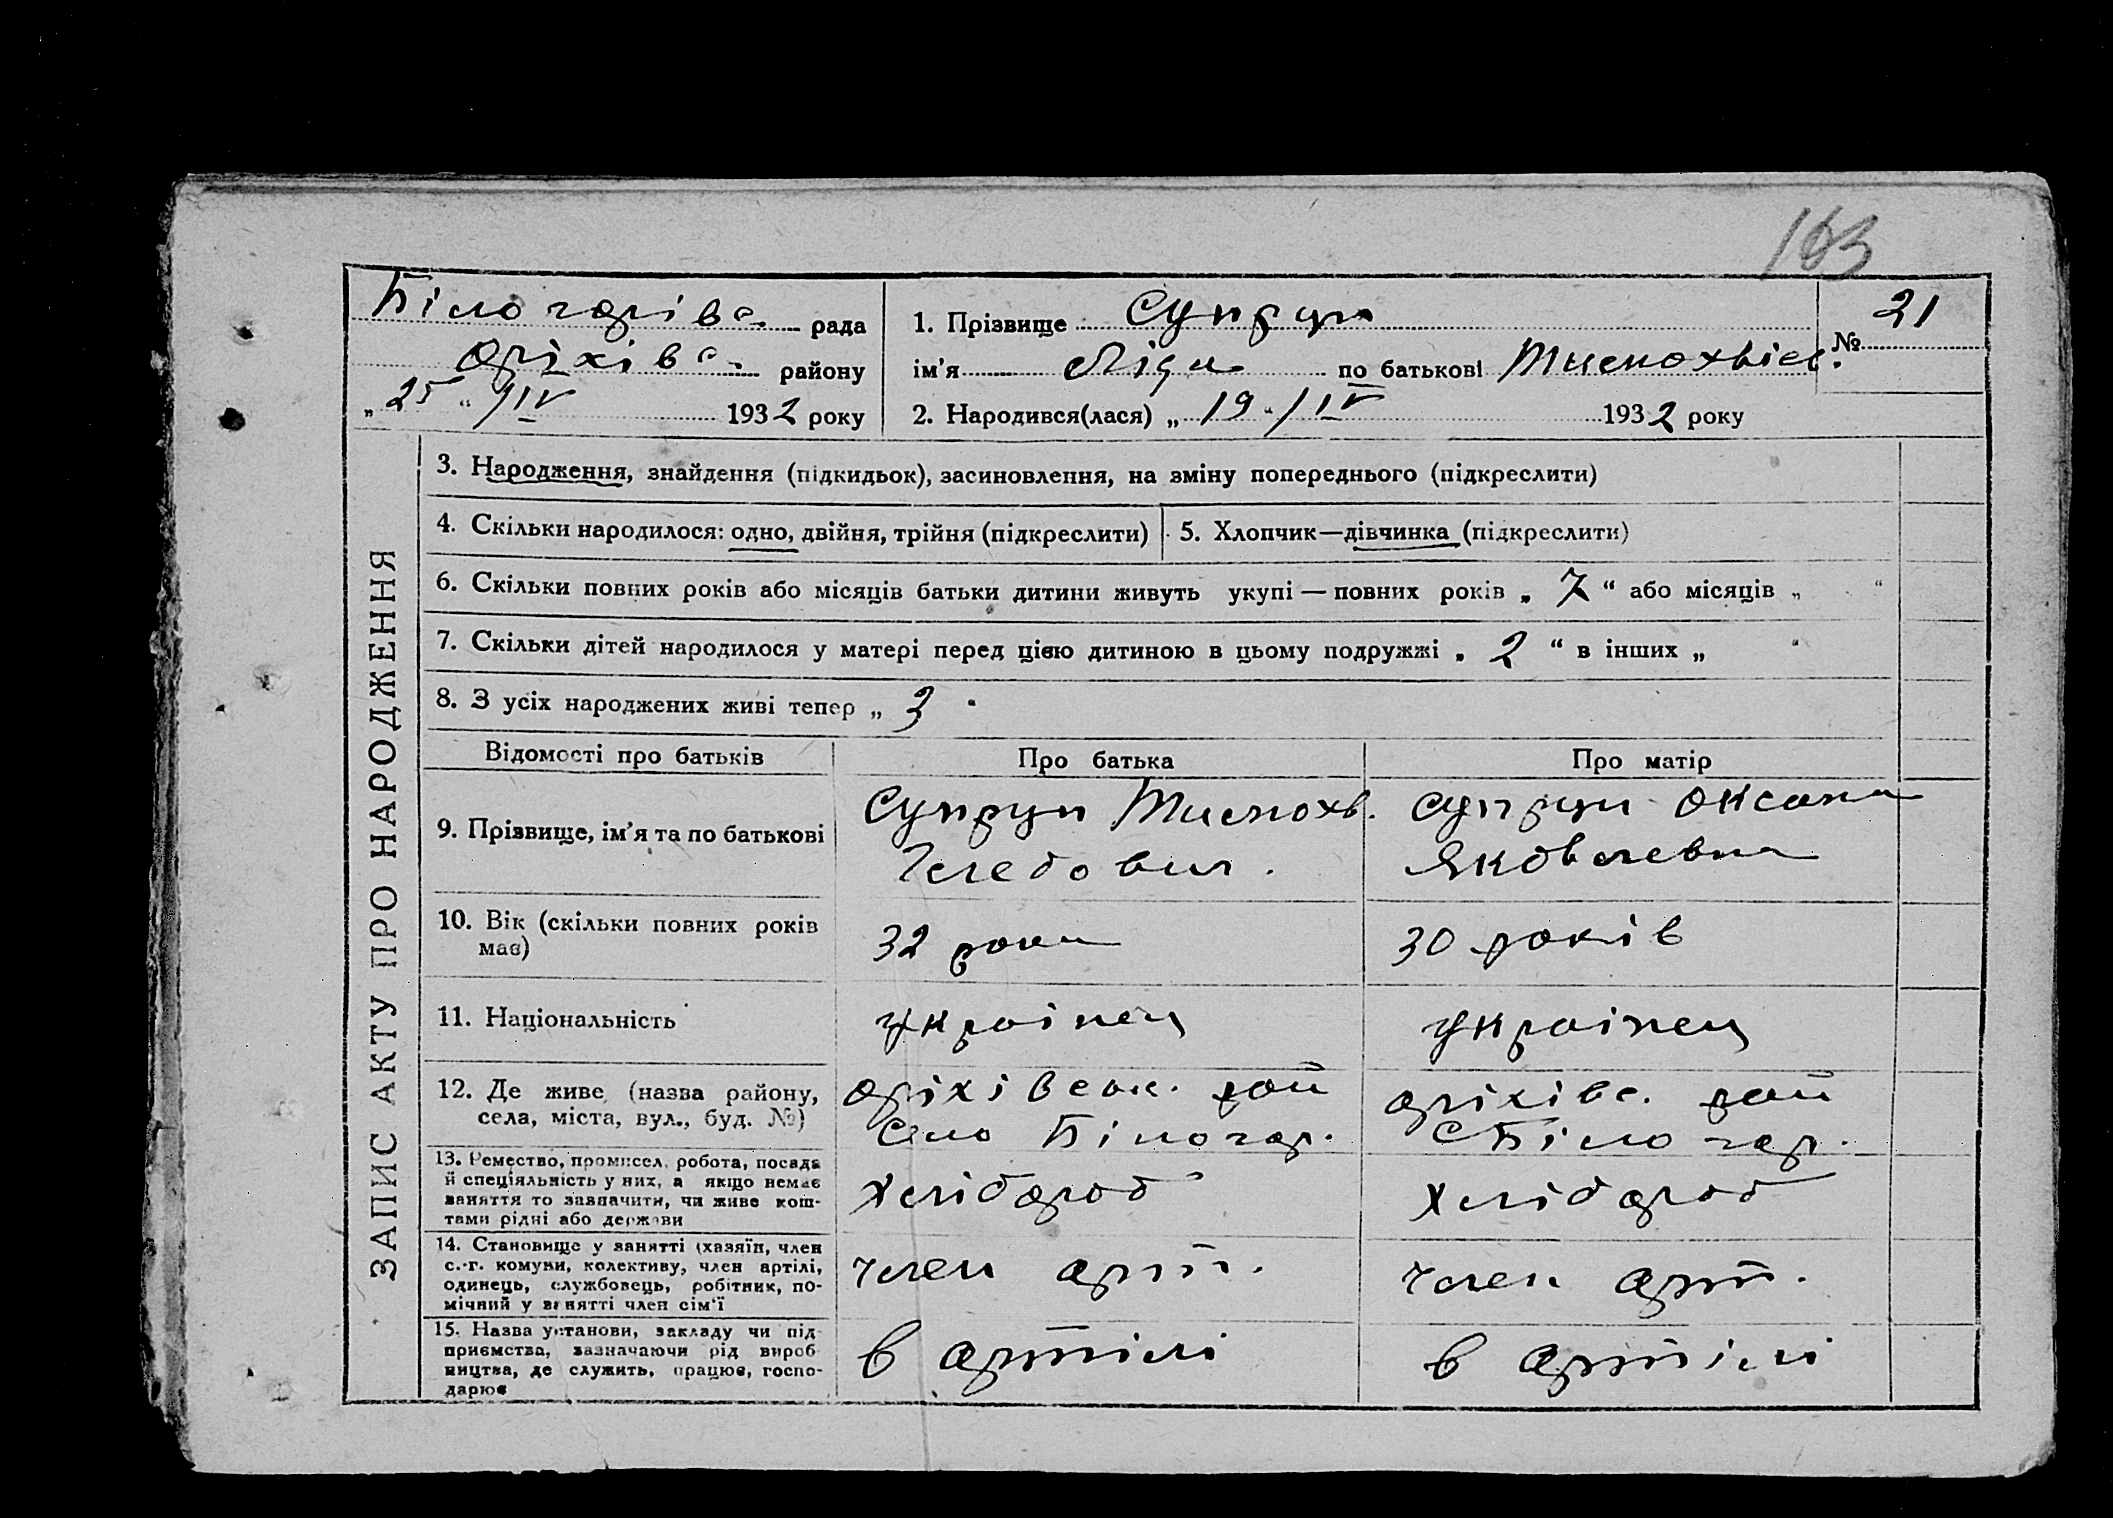 163
Білогорівс. рада
Оріхівс. району
„ 25 “ /IV 1932 року
1. Прізвище Супрун
ім'я Ліда по батькові Тимохвієв.
2. Народився(лася) „ 19 “ /IV 1932 року
№ 21
ЗАПИС АКТУ ПРО НАРОДЖЕННЯ
3. Народження, знайдення (підкидьок), засиновлення, на зміну попереднього (підкреслити)
4. Скільки народилося: одно, двійня, трійня (підкреслити)
5. Хлопчик—дівчинка (підкреслити)
6. Скільки повних років або місяців батьки дитини живуть укупі — повних років „ 7 “ або місяців „ “
7. Скільки дітей народилося у матері перед цією дитиною в цьому подружжі „ 2 “ в інших „ “
8. З усіх народжених живі тепер „ 3 "
Відомості про батьків Про батька Про матір
9. Прізвище, ім'я та по батькові
Супрун Тимохв.
Глебович.
Супрун Оксана
Яковлевна
10. Вік (скільки повних років
має)
32 роки
30 років
11. Національність
українец
українец
12. Де живе (назва району,
села, міста, вул., буд. №)
Оріхівськ. рай
село Білогор.
Оріхівс. рай
с Білогор.
13. Ремество, промисел, робота, посада
й спеціяльність у них, а якщо немає
заняття то зазначити, чи живе кош-
тами рідні або держави
Хлібороб
Хлібороб
14. Становище у занятті (хазяїн, член
с.-г. комуни, колективу, член артілі,
одинець, службовець, робітник, по-
мічний у занятті член сім'ї
член арт.
член арт.
15. Назва установи, закладу чи під-
приємства, зазначаючи рід вироб-
ництва, де служить, працює, госпо-
дарює
в артілі
в артілі